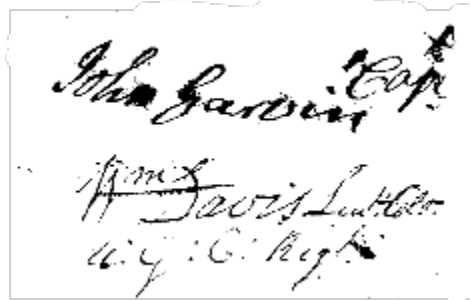 John Garvin Capt
Wm Davis Lieut. Colo.
Regt.